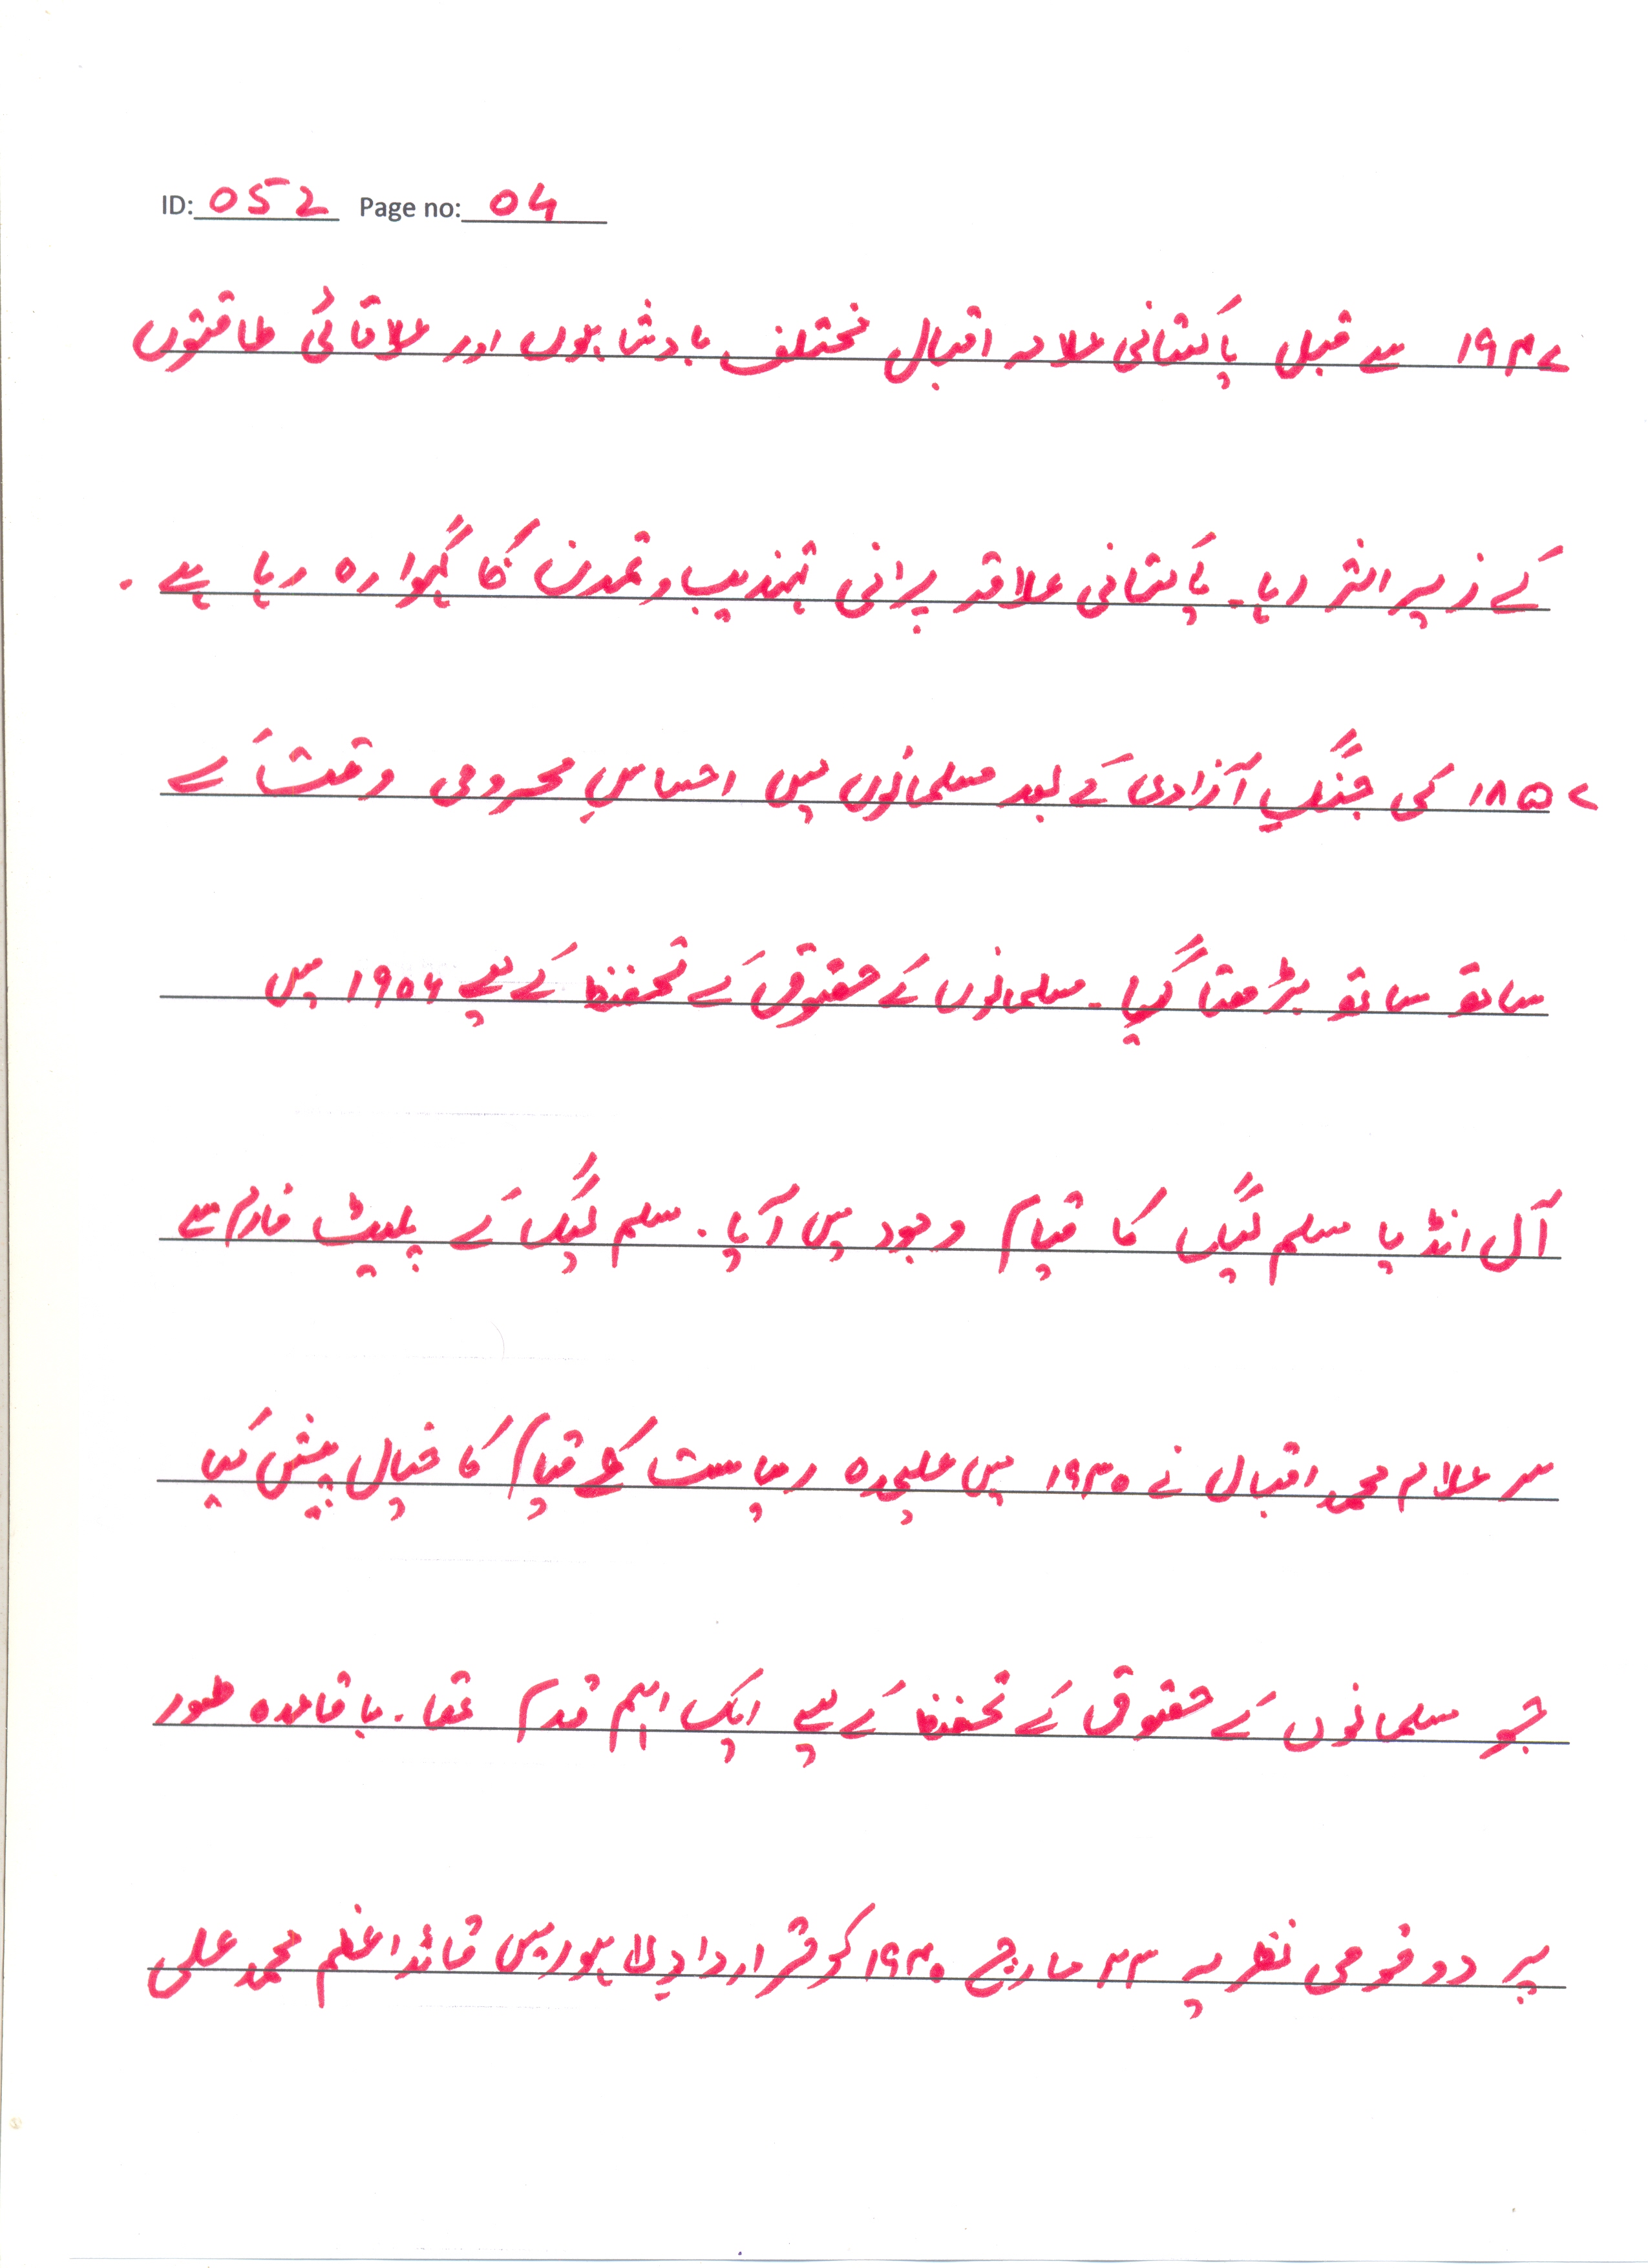 ID: 052 Page no: 04
۱۹۴۷ سے قبل پاکستانی علامہ اقبال مختلف بادشاہوں اور علاقائی طاقتوں
کے زیر اثر رہا۔ پاکستانی علاقہ پرانی تہذیب و تمدن کا گہوارہ رہا ہے۔
۱۸۵۷ کی جنگِ آزادی کے بعد مسلمانوں میں احساسِ محرومی وقت کے
ساتھ ساتھ بڑھتا گیا۔ مسلمانوں کے حقوق کے تحفظ کے لیے ۱۹۰۶ میں
آل انڈیا مسلم لیگ کا قیام وجود میں آیا۔ مسلم لیگ کے پلیٹ فارم سے
سر علام محمد اقبال نے ۱۹۳۰ میں علیحدہ ریاست کے قیام کا خیال پیش کیا
جو مسلمانوں کے حقوق کے تحفظ کے لیے ایک اہم قدم تھا۔ باقاعدہ طور
پر دو قومی نظریہ ۲۳ مارچ ۱۹۴۰ کو قرارداد لاہور میں قائداعظم محمد علی